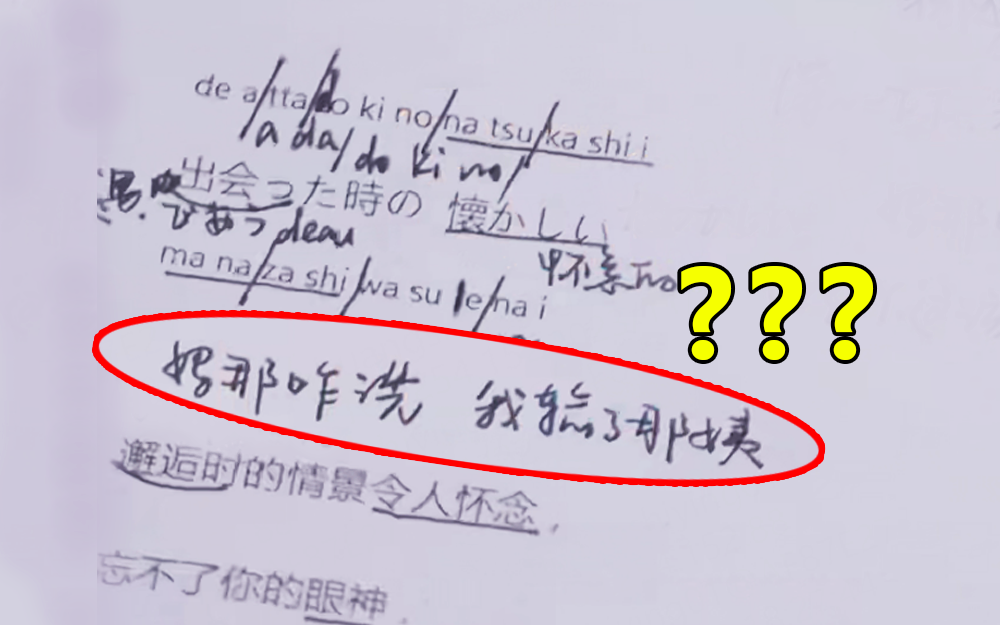 de a tta to ki no na tsu ka shi i
a da do ki no
出会った時の 懐かしい
であう deau
怀念
ma na za shi wa su le na i
???
妈那咋洗 我输了那姨
邂逅时的情景令人怀念,
忘不了你的眼神.